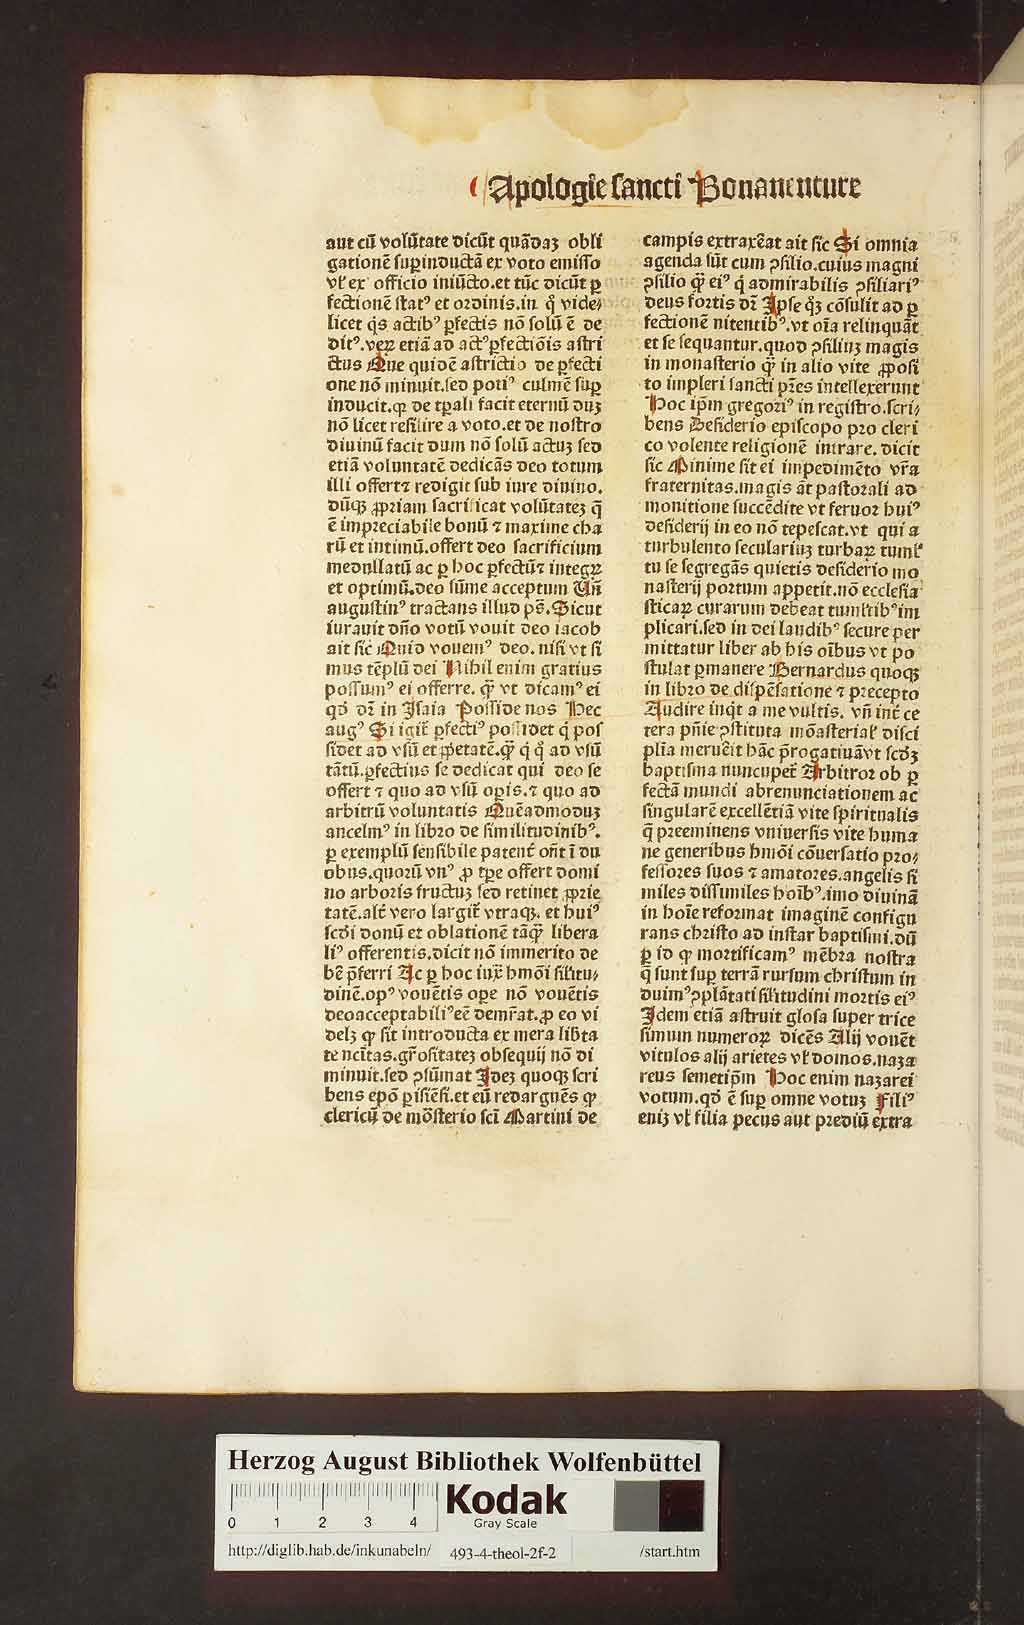 Apologie sancti Bonauenture
aut cū volūtate dicūt quādaꝫ obli
gationē suꝑinductā ex voto emisso
vl' ex officio iniūcto.et tūc dicūt ꝑ
fectionē statꝰ et ordinis.in q̊ vide⸗
licet q̄s actibꝰ ꝑfectis nō solū ē de
ditꝰ.veꝝ etiā ad actꝰ ꝑfectiōis astri
ctus Que quidē astrictio de ꝑfecti
one nō minuit.sed potiꝰ culmē suꝑ
inducit.ꝙ de tꝑali facit eternū duꝫ
nō licet resilire a voto.et de nostro
diuinū facit dum nō solū actuꝫ sed
etiā voluntatē dedicās deo totum
illi offert⁊ redigit sub iure diuino.
dūqꝫ ꝓpriam sacrificat volūtateꝫ q̄
ē impreciabile bonū ⁊ maxime cha
rū et intimū.offert deo sacrificium
medullatū ac ꝑ hoc ꝑfectū⁊ integꝝ
et optimū.deo sūme acceptum Un̄
augustinꝰ tractans illud ps̄. Sicut
iurauit dn̄o votū vouit deo iacob
ait sic Quid vouemꝰ deo. nisi vt si
mus tēplū dei Nihil enim gratius
possumꝰ ei offerre. q̄ꝫ vt dicamꝰ ei
qd̄ dr̄ in Isaia Posside nos Hec
augꝰ Si igit̄ ꝑfectiꝰ possidet q̄ pos
sidet ad vsū et ꝓꝑetatē.q̄ꝫ q̄ q̊ ad vsū
tātū.ꝑfectius se dedicat qui deo se
offert ⁊ quo ad vsū oꝑis.⁊ quo ad
arbitrū voluntatis Quēadmoduꝫ
ancelmꝰ in libro de similitudinibꝰ.
ꝑ exemplū sensibile patent̄ on̄t ī du
obus.quorū vnꝰ ꝓ tꝑe offert domi
no arboris fructuꝫ sed retinet ꝓprie
tatē.alt̄ vero largit̄ vtraqꝫ. et huiꝰ
scd̄i donū et oblationē tāq̄ꝫ libera
liꝰ offerentis.dicit nō immerito de
bē p̄ferri Ac ꝑ hoc iux̄ hmōi sil'itu⸗
dinē.opꝰ vouētis oꝑe nō vouētis
deoacceptabiliꝰ eē demr̄at.ꝓ eo vi
delꝫ ꝙ sit introducta ex mera lib̄ta
te nc̄itas.gr̄ositateꝫ obsequij nō di
minuit.sed ꝯsūmat Ideꝫ quoqꝫ scri
bens ep̄o ꝑisiēsi.et eū redarguēs ꝙ
clericū de mōsterio sc̄i Martini de
campis extraxēat ait sic Si omnia
agenda sūt cum ꝯsilio.cuius magni
ꝯsilio q̄ꝫ eiꝰ q̄ admirabilis ꝯsiliariꝰ
deus fortis dr̄ Ipse q̊ꝫ cōsulit ad ꝑ
fectionē nitentibꝰ.vt oīa relinquāt
et se sequantur.quod ꝯsiliuꝫ magis
in monasterio q̄ꝫ in alio vite ꝓposi
to impleri sancti pr̄es intellexerunt
Hoc ip̄m gregoriꝰ in registro.scri⸗
bens Desiderio episcopo pro cleri
co volente religionē intrare. dicit
sic Minime sit ei impedimēto vr̄a
fraternitas.magis āt pastorali ad
monitione succēdite vt feruor huiꝰ
desiderij in eo nō tepescat.vt qui a
turbulento seculariuꝫ turbaꝝ tuml'
tu se segregās quietis desiderio mo
nasterij portum appetit.nō ecclesia
sticaꝝ curarum debeat tuml'tibꝰ im
plicari.sed in dei laudibꝰ secure per
mittatur liber ab his oībus vt po
stulat ꝑmanere Bernardus quoqꝫ
in libro de dispēsatione ⁊ precepto
Audire inq̄t a me vultis. vn̄ int̄ ce
tera pn̄ie ꝯstituta mōasterial' disci
plīa meruēit hāc p̄rogatiuā vt scd̄ꝫ
baptisma nuncupet̄ Arbitror ob ꝑ
fectā mundi abrenunciationem ac
singularē excellētiā vite spiritualis
q̄ preeminens vniuersis vite huma
ne generibus hmōi cōuersatio pro⸗
fessores suos ⁊ amatores.angelis si
miles dissimiles hoībꝰ.imo diuinā
in hoīe reformat imaginē configu
rans christo ad instar baptismi.dū
ꝑ id ꝙ mortificamꝰ mēbra nostra
q̄ sunt suꝑ terrā rursum christum in
duimꝰ ꝯplātati sil'itudini mortis eiꝰ
Idem etiā astruit glosa super trice
simum numeroꝝ dicēs Alij vouēt
vitulos alij arietes vl' domos.naza
reus semetip̄m Hoc enim nazarei
votum.qd̄ ē suꝑ omne votuꝫ Filiꝰ
eniꝫ vl' filia pecus aut prediū extra
Herzog August Bibliothek Wolfenbüttel
0 1 2 3 4
Kodak
Gray Scale
http://diglib.hab.de/inkunabeln/ 493-4-theol-2f-2 /start.htm